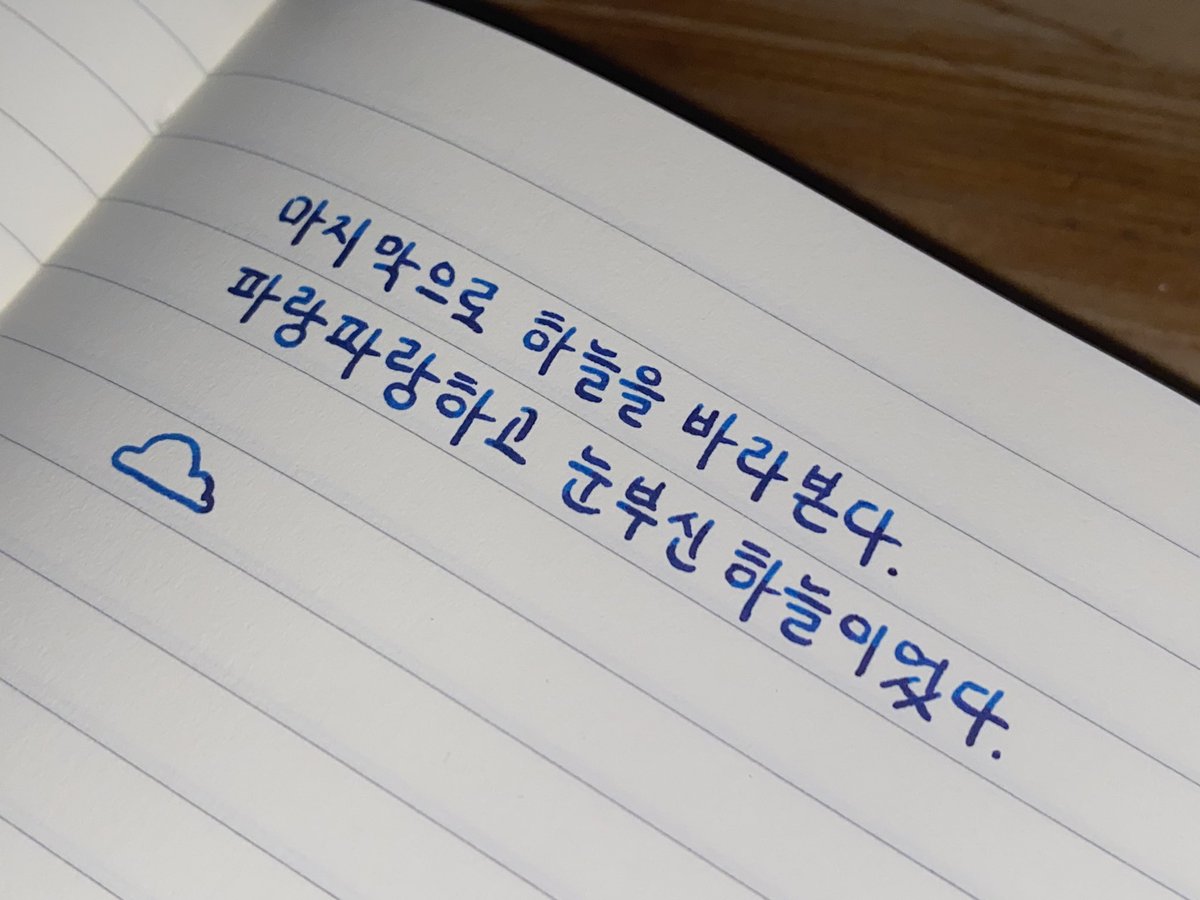 마지막으로 하늘을 바라본다.
파랑파랑하고 눈부신 하늘이었다.